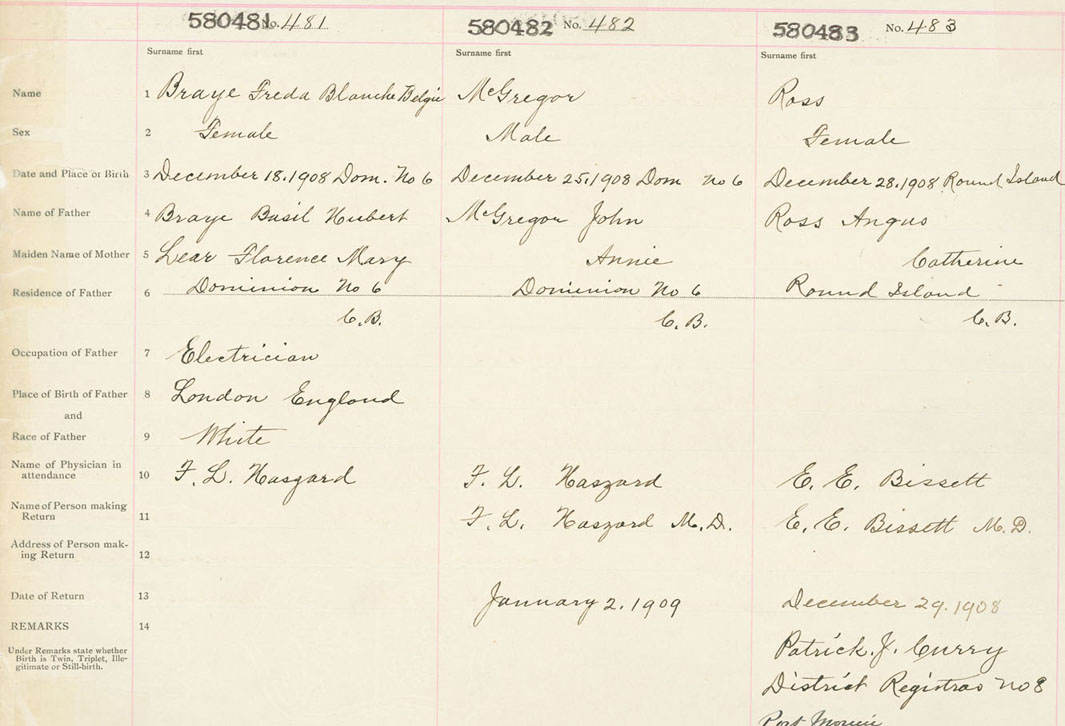 580481 No. 481 580482 No. 482 580483 No. 483
Surname first Surname first Surname first
Name 1 Braye Freda Blanche Belgie McGregor Ross
Sex 2 Female Male Female
Date and Place of Birth 3 December 18. 1908 Dom. No 6 December 25. 1908 Dom No 6 December 28. 1908 Round Island
Name of Father 4 Braye Basil Hubert McGregor John Ross Angus
Maiden Name of Mother 5 Lear Florence Mary Annie Catherine
Residence of Father 6 Dominion No 6 Dominion No 6 Round Island
C.B. C.B. C.B.
Occupation of Father 7 Electrician
Place of Birth of Father 8 London England
and
Race of Father 9 White
Name of Physician in
attendance 10 F. L. Haszard F. L. Haszard E. E. Bissett
Name of Person making
Return 11 F. L. Haszard M.D. E. E. Bissett M.D.
Address of Person mak-
ing Return 12
Date of Return 13 January 2. 1909 December 29. 1908
REMARKS 14
Under Remarks state whether
Birth is Twin, Triplet, Ille-
gitimate or Still-birth.
Patrick. J. Curry
District Registrar No 8
Port Morien